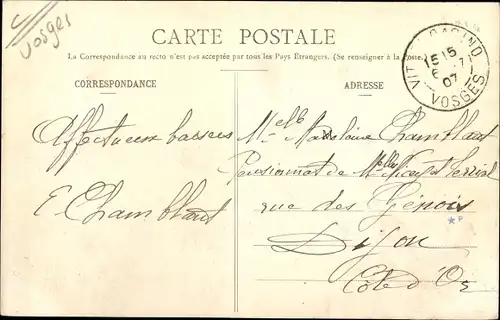 Vosges
CARTE POSTALE
La Correspondance au recto n'est pas acceptée par tous les Pays Etrangers. (Se renseigner à la Poste.)
CORRESPONDANCE
ADRESSE
VIT CASINO
15
07
VOSGES
Affectueux baisers
E Chamblant
Melle Madeleine Chamblant
Pensionnat de Melles
rue des Génois
Dijon
Côte d'Or